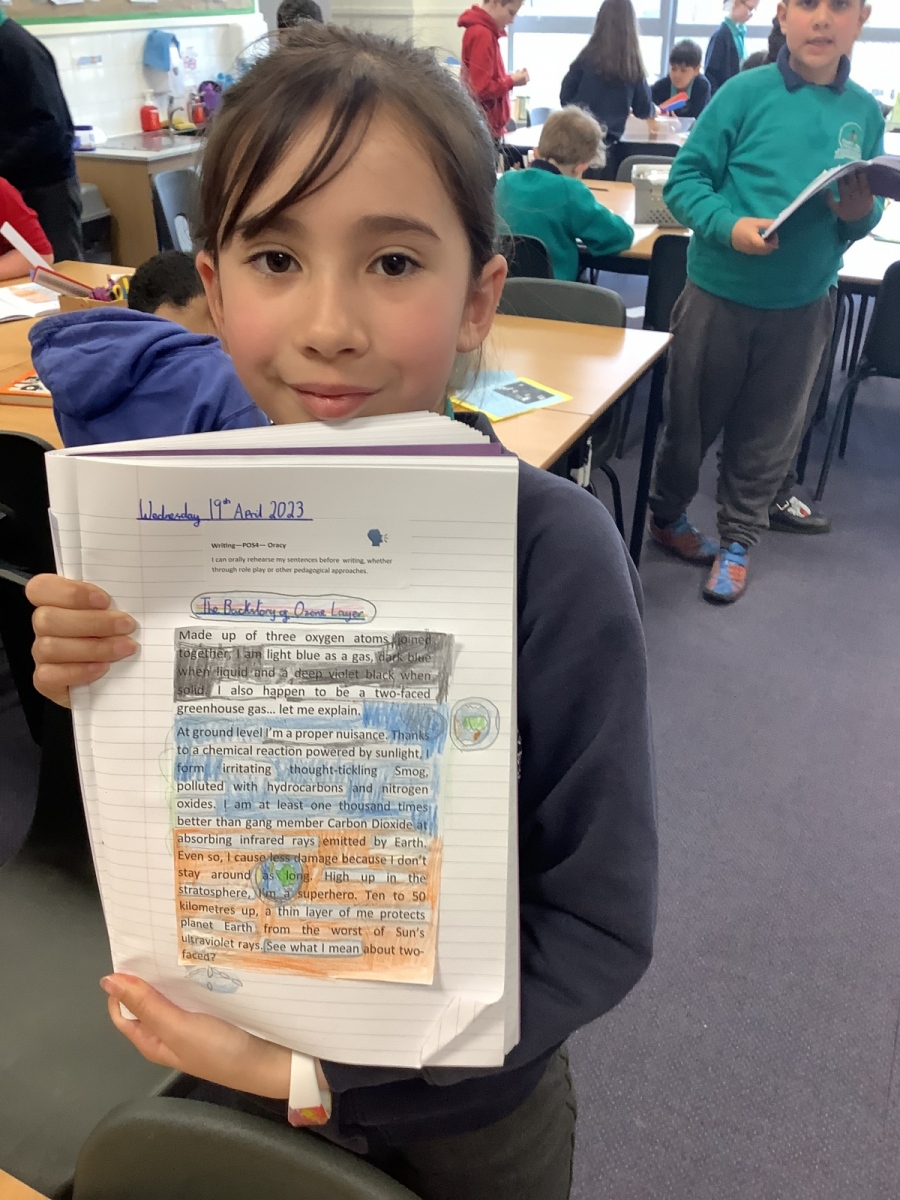 Wednesday 19th April 2023
Writing—POS4— Oracy
I can orally rehearse my sentences before writing, whether
through role play or other pedagogical approaches.
The Backstory of Ozone Layer
Made up of three oxygen atoms joined
together, I am light blue as a gas, dark blue
when liquid and a deep violet black when
solid. I also happen to be a two-faced
greenhouse gas... let me explain.
At ground level I'm a proper nuisance. Thanks
to a chemical reaction powered by sunlight, I
form irritating thought-tickling Smog,
polluted with hydrocarbons and nitrogen
oxides. I am at least one thousand times
better than gang member Carbon Dioxide at
absorbing infrared rays emitted by Earth.
Even so, I cause less damage because I don't
stay around as long. High up in the
stratosphere, I'm a superhero. Ten to 50
kilometres up, a thin layer of me protects
planet Earth from the worst of Sun's
ultraviolet rays. See what I mean about two-
faced?